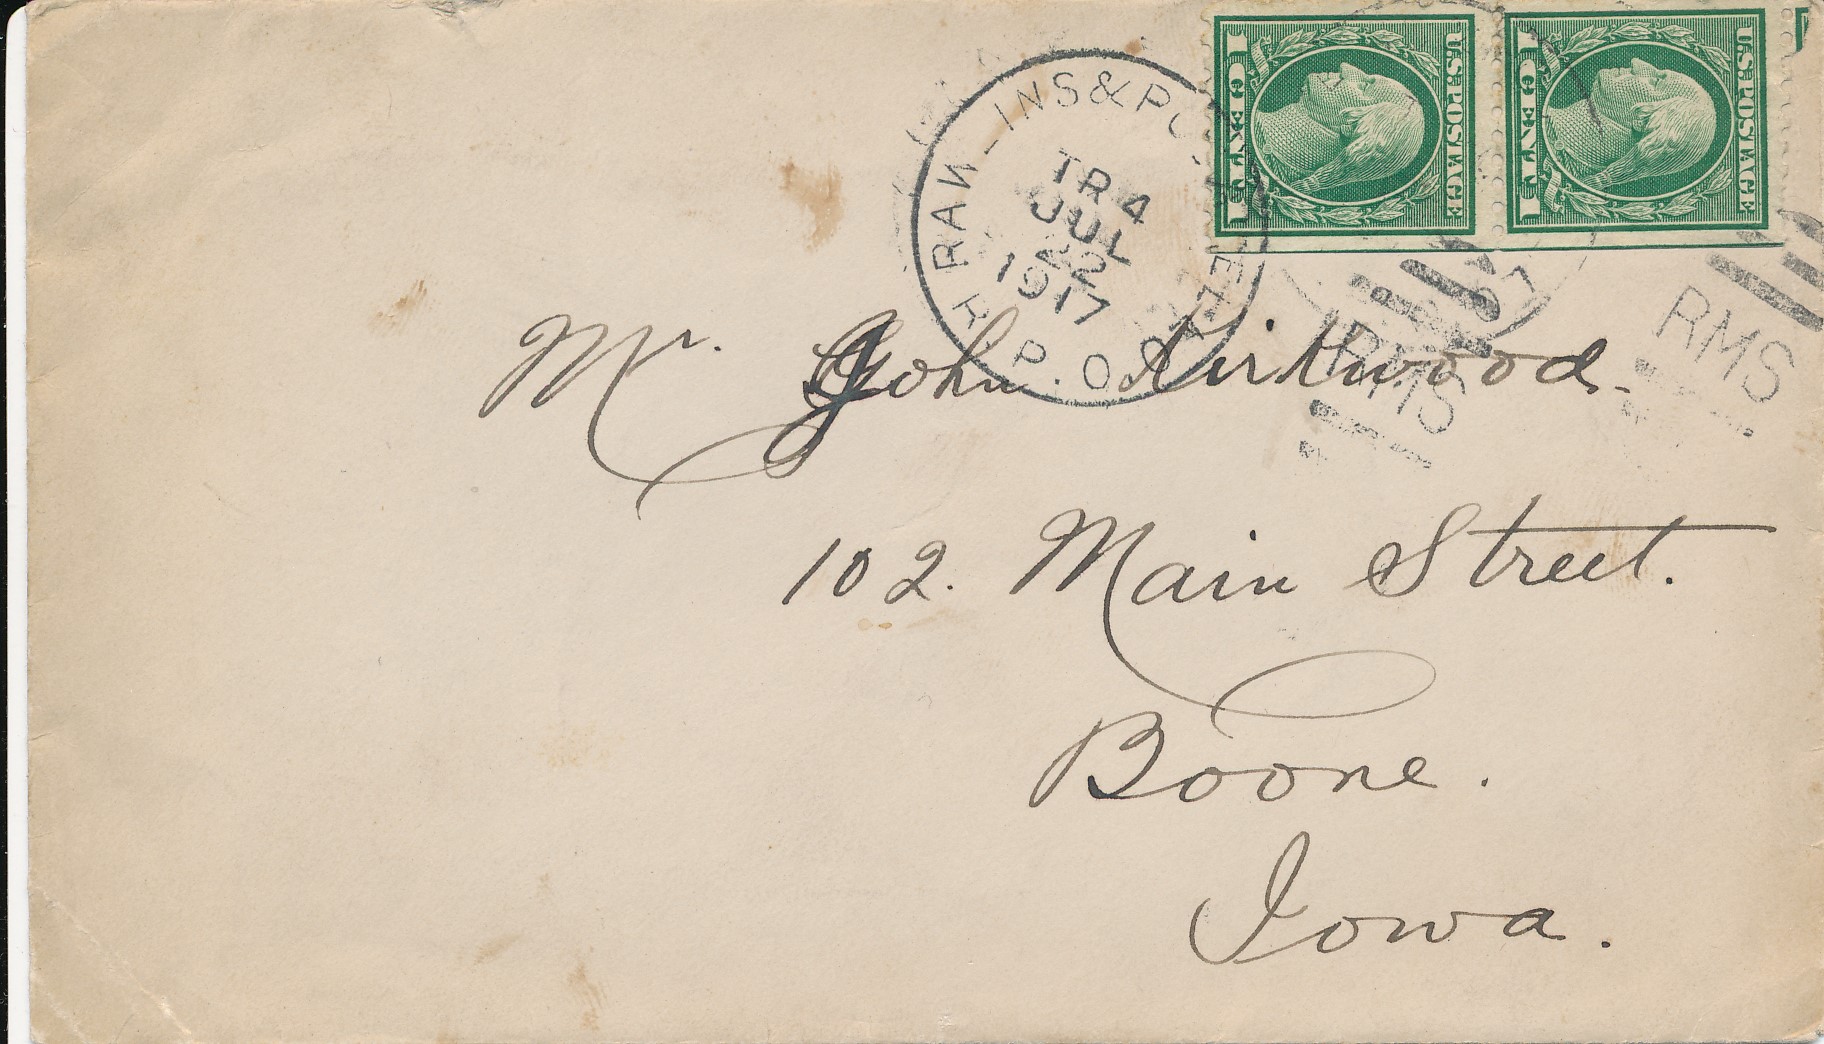 U.S. POSTAGE
1 CENT 1
U.S. POSTAGE
1 CENT 1
RAW_INS & PO
TR 4
JUL
22
1917
R.P.O.
RMS
RMS
Mr. John Kirkwood.
102. Main Street.
Boone.
Iowa.